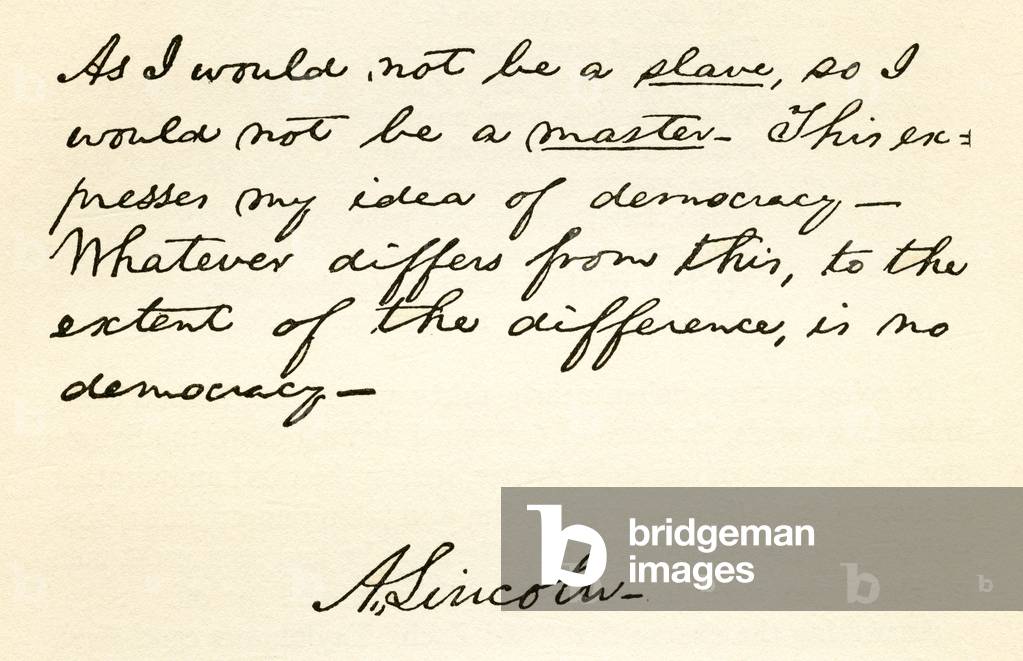 As I would not be a slave, so I
would not be a master— This ex=
presses my idea of democracy—
Whatever differs from this, to the
extent of the difference, is no
democracy—
A. Lincoln—
bridgeman
images